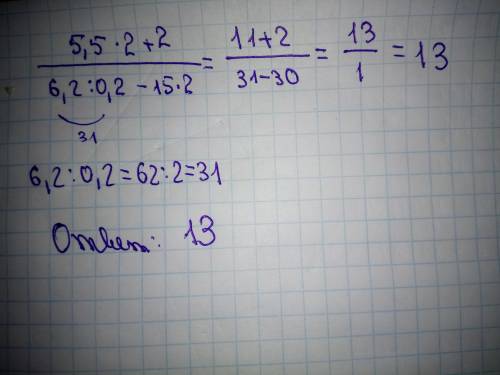 5,5·2+2 / 6,2:0,2-15·2 = 11+2 / 31-30 = 13 / 1 = 13
31
6,2:0,2=62:2=31
Ответ: 13